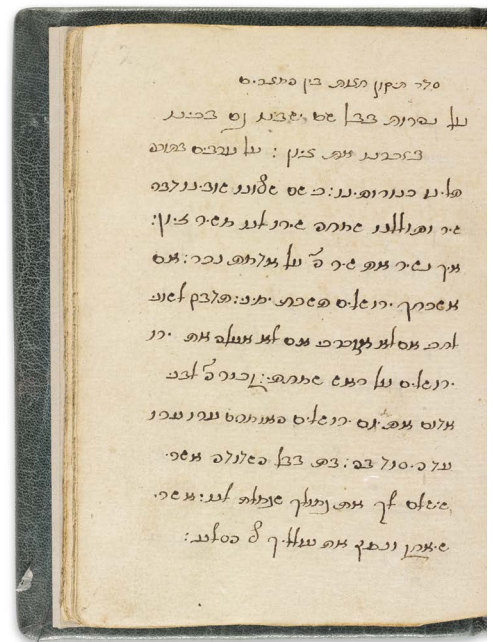 סדר תיקון חצות בין המצרים
על נהרות בבל שם ישבנו גם בכינו
בזכרנו את ציון : על ערבים בתוכה
תלינו כנורותינו : כי שם שאלונו שובינו דברי
שיר ותוללנו שמחה שירו לנו משיר ציון :
איך נשיר את שיר ה' על אדמת נכר : אם
אשכחך ירושלים תשכח ימיני : תדבק לשוני
לחכי אם לא אזכרכי אם לא אעלה את ירו
ירושלים על ראש שמחתי : זכור ה' לבני
אדום את יום ירושלים האומרים ערו ערו
עד היסוד בה : בת בבל השדודה אשרי
שישלם לך את גמולך שגמלת לנו : אשרי
שיאחז ונפץ את עולליך אל הסלע :